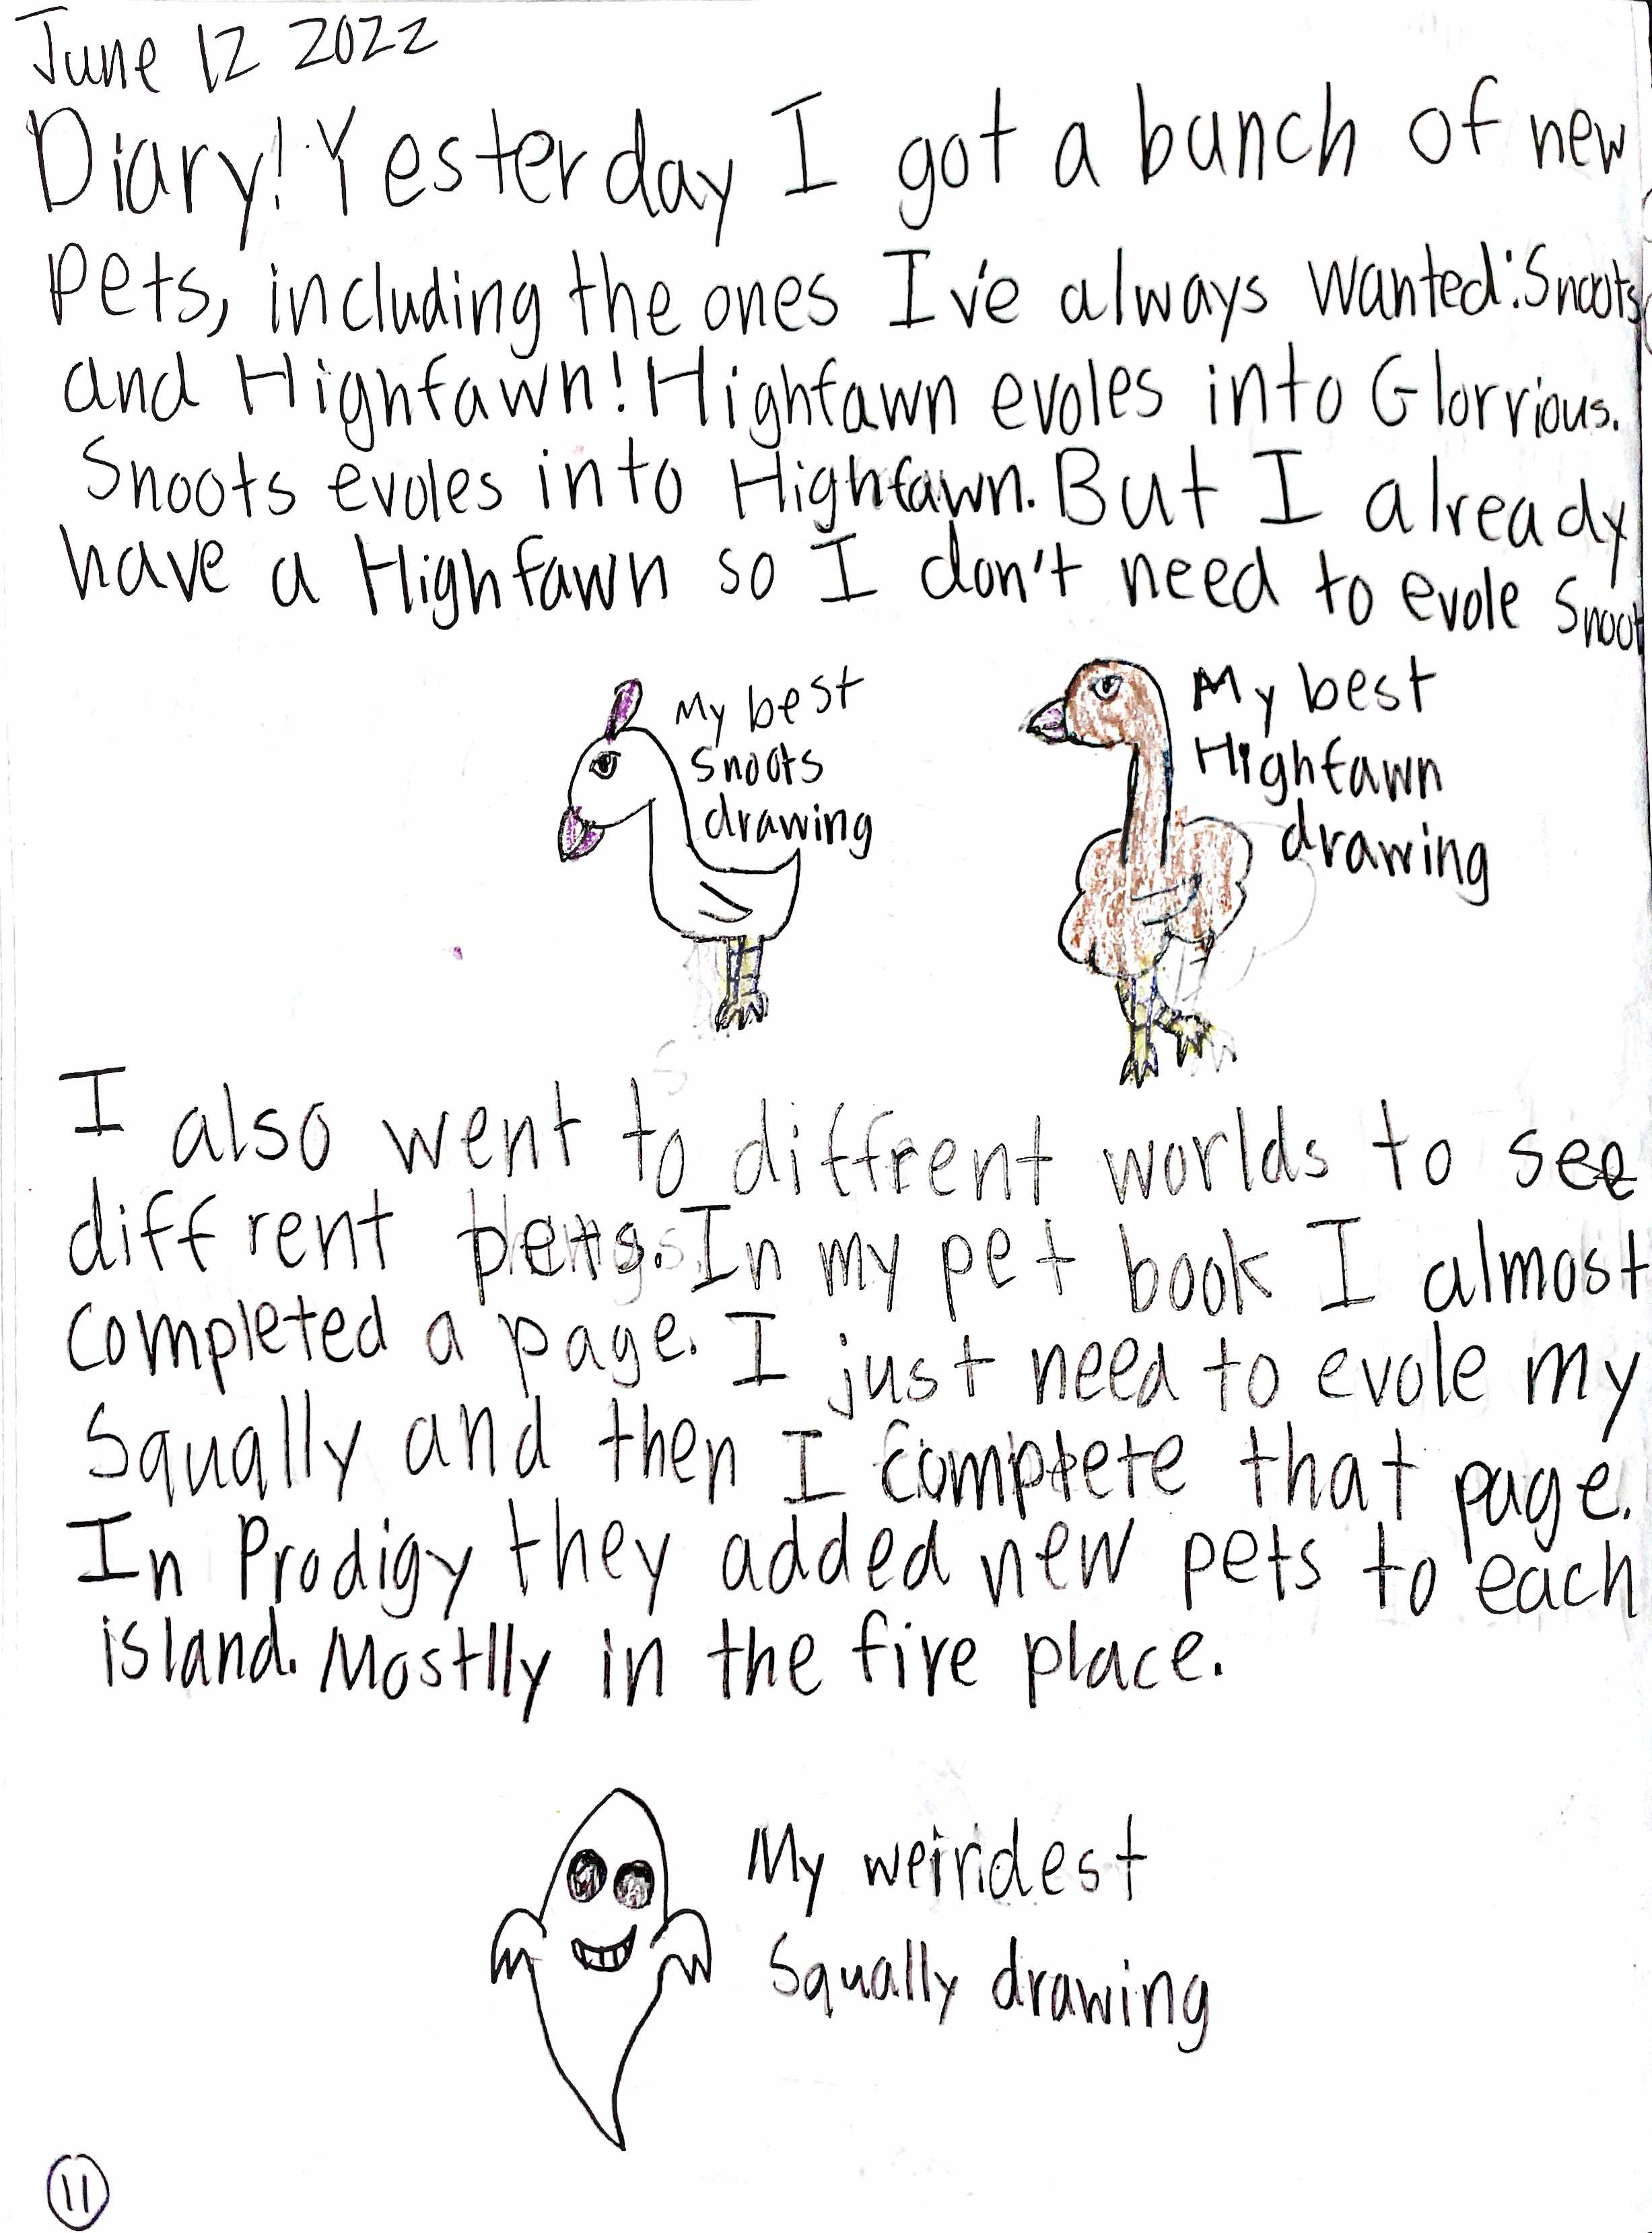 June 12 2022
Diary! Yesterday I got a bunch of new
pets, including the ones I've always wanted: Snoots
and Highfawn! Highfawn evoles into Glorrious.
Snoots evoles into Highfawn. But I already
have a Highfawn so I don't need to evole Snoot
My best
Snoots
drawing
My best
Highfawn
drawing
I also went to diffrent worlds to see
diffrent pets. In my pet book I almost
completed a page. I just need to evole my
Squally and then I complete that page.
In Prodigy they added new pets to each
island. Mostlly in the fire place.
My weirdest
Squally drawing
11